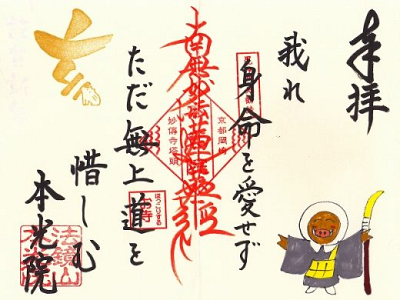 奉拝
我れ
身命を愛せず
南無妙法蓮華経
京都岡崎
妙傳寺塔頭
ただ無上道を
惜しむ
本光院
法鏡山